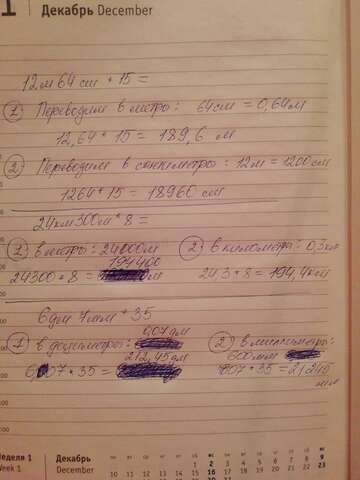 1 Декабрь December
12м 64см * 15 =
① Переводим в метры: 64см = 0,64м
12,64 * 15 = 189,6 м
② Переводим в сантиметры: 12м = 1200см
1264 * 15 = 18960 см
24км 300м * 8 =
① в метры: 24000м ② в километры: 0,3км
194400
24300 * 8 = м 24,3 * 8 = 194,4км
6дм 7мм * 35
0,07 дм
① в дециметры: ② в миллиметры:
212,45дм 600мм
6,07 * 35 = 607 * 35 = 21245
мм
Неделя 1 Декабрь
Week 1 December
2 9
10 11 12 13 14 15 16 17 18 19 20 21 22 23